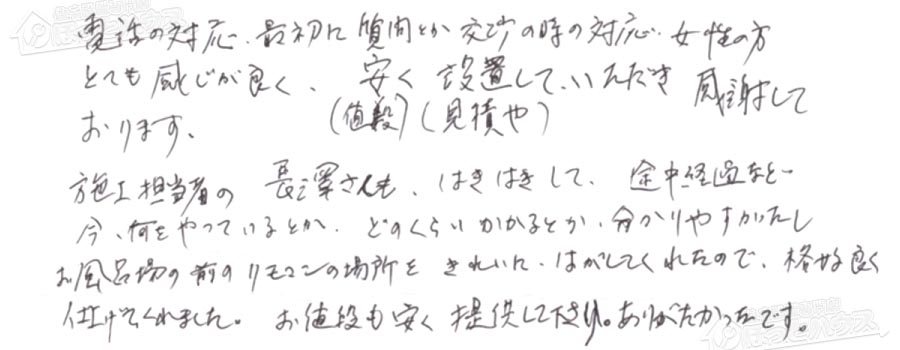 電話の対応、最初に質問とか交渉の時の対応、女性の方
とても感じが良く、安く設置して、いただき感謝して
(値段)(見積や)
おります。
施工担当者の長澤さんも、はきはきして、途中経過など
今、何をやっているとか、どのくらいかかるとか、分かりやすかったし
お風呂場の前のリモコンの場所をきれいに、はがしてくれたので、格好良く
仕上げてくれました。お値段も安く提供して下さり。ありがたかったです。